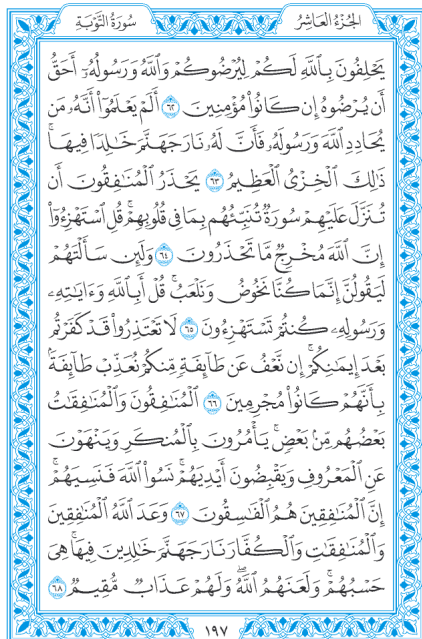 الجُزْءُ العَاشِرُ سُورَةُ التَّوْبَةِ
يَحْلِفُونَ بِٱللَّهِ لَكُمْ لِيُرْضُوكُمْ وَٱللَّهُ وَرَسُولُهُۥٓ أَحَقُّ
أَن يُرْضُوهُ إِن كَانُوا۟ مُؤْمِنِينَ ٦٢ أَلَمْ يَعْلَمُوٓا۟ أَنَّهُۥ مَن
يُحَادِدِ ٱللَّهَ وَرَسُولَهُۥ فَأَنَّ لَهُۥ نَارَ جَهَنَّمَ خَٰلِدًا فِيهَا ۚ
ذَٰلِكَ ٱلْخِزْىُ ٱلْعَظِيمُ ٦٣ يَحْذَرُ ٱلْمُنَٰفِقُونَ أَن
تُنَزَّلَ عَلَيْهِمْ سُورَةٌ تُنَبِّئُهُم بِمَا فِى قُلُوبِهِمْ ۚ قُلِ ٱسْتَهْزِءُوٓا۟
إِنَّ ٱللَّهَ مُخْرِجٌ مَّا تَحْذَرُونَ ٦٤ وَلَئِن سَأَلْتَهُمْ
لَيَقُولُنَّ إِنَّمَا كُنَّا نَخُوضُ وَنَلْعَبُ ۚ قُلْ أَبِٱللَّهِ وَءَايَٰتِهِۦ
وَرَسُولِهِۦ كُنتُمْ تَسْتَهْزِءُونَ ٦٥ لَا تَعْتَذِرُوا۟ قَدْ كَفَرْتُم
بَعْدَ إِيمَٰنِكُمْ ۚ إِن نَّعْفُ عَن طَآئِفَةٍ مِّنكُمْ نُعَذِّبْ طَآئِفَةًۢ
بِأَنَّهُمْ كَانُوا۟ مُجْرِمِينَ ٦٦ ٱلْمُنَٰفِقُونَ وَٱلْمُنَٰفِقَٰتُ
بَعْضُهُم مِّنۢ بَعْضٍ ۚ يَأْمُرُونَ بِٱلْمُنكَرِ وَيَنْهَوْنَ
عَنِ ٱلْمَعْرُوفِ وَيَقْبِضُونَ أَيْدِيَهُمْ ۚ نَسُوا۟ ٱللَّهَ فَنَسِيَهُمْ ۗ
إِنَّ ٱلْمُنَٰفِقِينَ هُمُ ٱلْفَٰسِقُونَ ٦٧ وَعَدَ ٱللَّهُ ٱلْمُنَٰفِقِينَ
وَٱلْمُنَٰفِقَٰتِ وَٱلْكُفَّارَ نَارَ جَهَنَّمَ خَٰلِدِينَ فِيهَا ۚ هِىَ
حَسْبُهُمْ ۚ وَلَعَنَهُمُ ٱللَّهُ ۖ وَلَهُمْ عَذَابٌ مُّقِيمٌ ٦٨
١٩٧